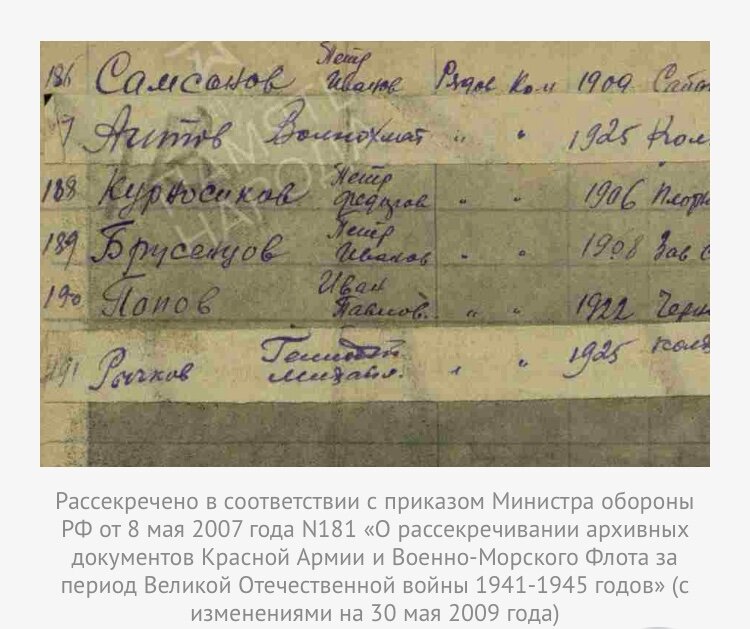 186 Самсонов Петр Иванов Рядов Ком 1909
7 Аитов 1925 Кол
188 Курносиков Петр Федоров " " 1906 Плотн
189 Брусенцов Петр Иванов " " 1908 Зав
190 Попов Иван Павлов. " " 1922
191 Рычков Михайл. " " 1925
ПАМЯТЬ НАРОДА
Рассекречено в соответствии с приказом Министра обороны
РФ от 8 мая 2007 года N181 «О рассекречивании архивных
документов Красной Армии и Военно-Морского Флота за
период Великой Отечественной войны 1941-1945 годов» (с
изменениями на 30 мая 2009 года)